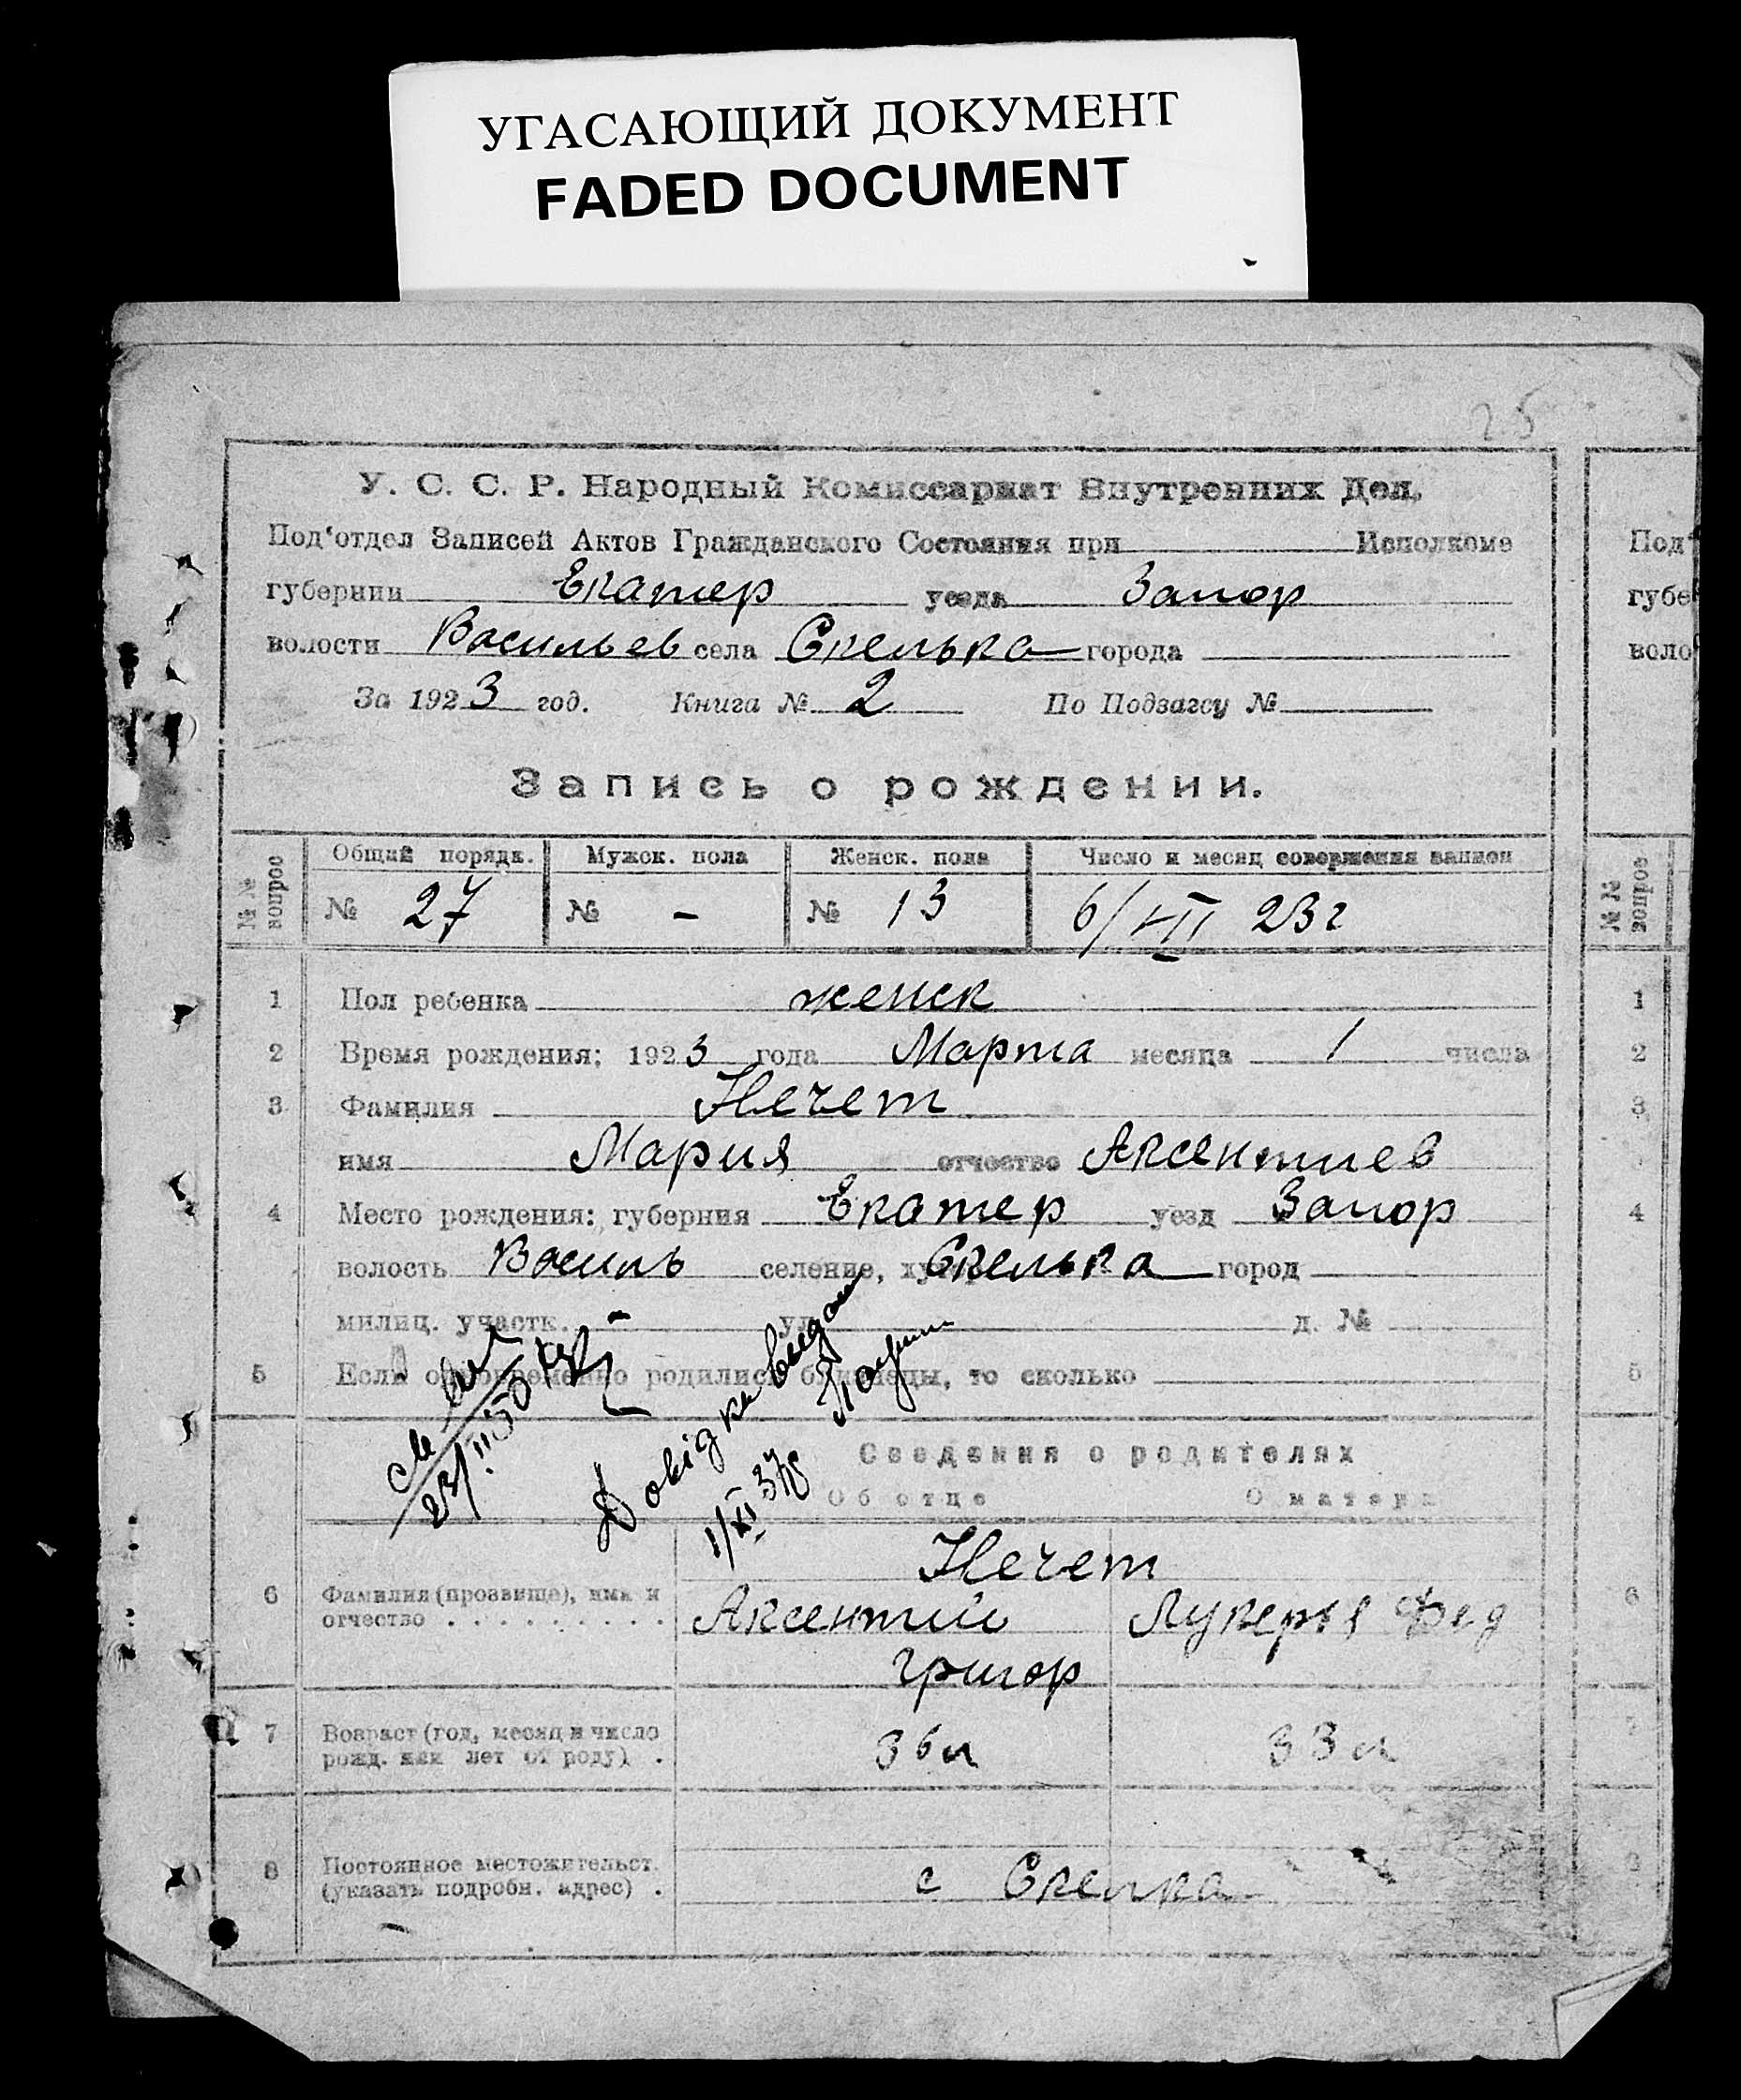 УГАСАЮЩИЙ ДОКУМЕНТ
FADED DOCUMENT
25
У. С. С. Р. Народный Комиссариат Внутренних Дел.
Под'отдел Записей Актов Гражданского Состояния при Исполкоме
губернии Екатер уезда Запор
волости Васильев села Скелька города
За 1923 год. Книга № 2 По Подзагсу №
Запись о рождении.
№ № вопрос
Общий порядк. Мужск. пола Женск. пола Число и месяц совершения записи
№ 27 № - № 13 6/III 23 г
1 Пол ребенка женск
2 Время рождения: 1923 года Марта месяца 1 числа
3 Фамилия Нечет
имя Мария отчество Аксентиев
4 Место рождения: губерния Екатер уезд Запор
волость Василь селение, Скелька город
милиц. участк. - ул. д. №
5 Если одновременно родились близнецы, то сколько
23/II 50
Довідки видан
1/XI 37р
Сведения о родителях
Об отце О матери
Нечет
6 Фамилия (прозвище), имя и
отчество . . . . . . . . .
Аксентий Лукерья Фед
Григор
7 Возраст (год, месяц и число
рожд. или лет от роду) .
36 л 33 л
8 Постоянное местожительст.
(указать подробн. адрес) .
с Скелка
Под'
губе
воло
№ № вопрос
1
2
3
4
5
6
7
8